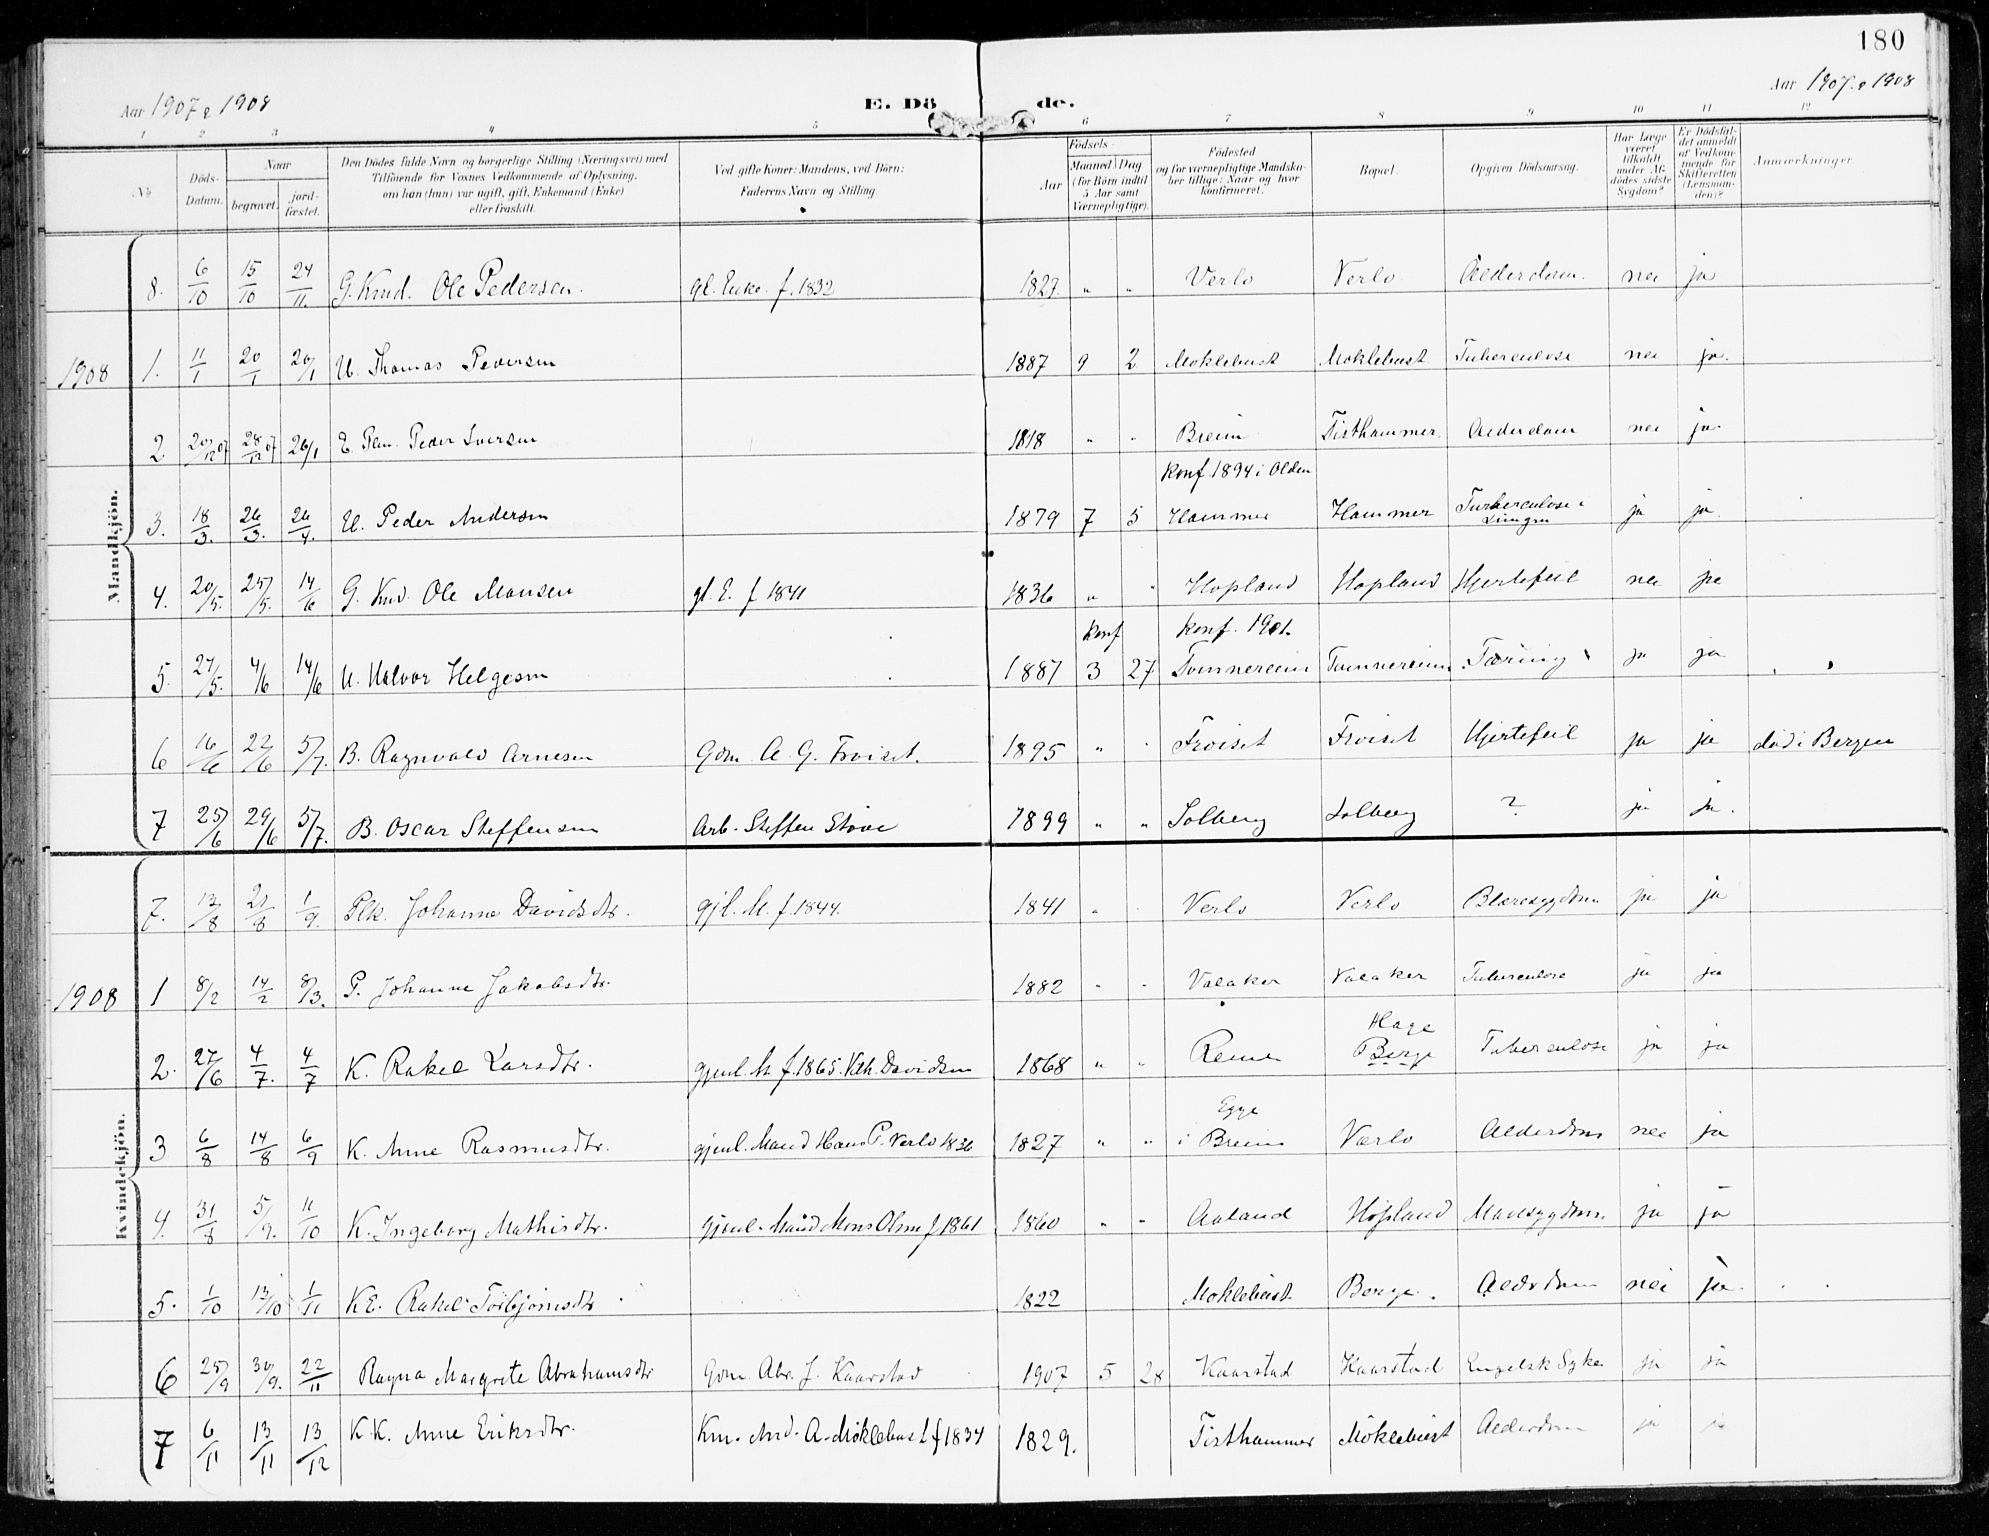 180
Aar 1907 & 1908
E. Dö de.
Aar 1907 & 1908
1 2 3 4 5 6 7 8 9 10 11 12
No
Döds-Datum.
Naar
begravet.
jordfæstet.
Den Dödes fulde Navn og borgerlige Stilling (Næringsvei) med
Tilföiende for Voxnes Vedkommende af Oplysning,
om han (hun) var ugift, gift, Enkemand (Enke)
eller fraskilt.
Ved gifte Koner: Mandens, ved Börn:
Faderens Navn og Stilling.
Födsels-
Aar
Maaned Dag
(for Börn indtil
5 Aar samt
Værnepligtige).
Födested
og for værnepligtige Mandskaber tillige: Naar og hvor
konfirmeret.
Bopæl.
Opgiven Dödsaarsag.
Har Læge
været
tilkaldt
under Afdödes sidste
Sygdom?
Er Dödsfaldet anmeldt
af Vedkommende for
Skifteretten
(Lensmanden)?
Anmærkninger.
Mandkjön.
8. 6/10 15/10 24/11. G. Kmd. Ole Pedersen. gl. Enke f. 1832 1827. " " Verlo Verlo Alderdom. nei ja
1908 1. 11/1 20/1 20/1 U. Thomas Pedersen 1887 9 2 Moklebust Moklebust Tuberculose nei ja.
2 20/12 07 28/12 07 26/1 E. Peder Iversen 1818 " " Breim Tisthammer Alderdom nei ja.
konf. 1894 i Olden
3. 18/3. 26/3. 26/4. U. Peder Andersen 1879 7 5 Hammer Hammer Turberculose i Lungen ja ja.
4. 20/5. 25/5. 14/6 G. Kmd. Ole Monsen gl. E. f 1841 1836 " " Hopland Hopland Hjertefeil nei ja
konf konf. 1901.
5 27/5. 4/6 14/6 U. Halvor Helgesen 1887 3 27 Tonnereim Tunnereim Tæring ja ja
6 16/6 22/6 5/7. B. Ragnvald Arnesen Gdm. A. G. Froiset. 1895 " " Froiset Froiset Hjertefeil ja ja död i Bergen
7 25/6 29/6 5/7. B. Oscar Steffensen Arb. Steffen Stöve 1899 " " Solberg Solberg ? ja ja.
Kvindekjön.
7. 13/8 21/8 1/9. Johanne Davidsdtr. gjl. M. f. 1844. 1841 " Verlo Verlo Blæresygdom ja ja
1908 1 8/2 14/2 8/3. P. Johanne Jakobsdtr. 1882 " " Valaker Valaker Tuberculose ja ja
Hage
2. 27/6 4/7. 4/7 K. Rakel Larsdtr. gjenl. M f. 1865. Davidsen 1868 " " Berge Tuberculose ja ja
Egge
3 6/8 14/8 6/9 K. Anne Rasmusdtr. gjenl. Mand Hans P. Verlo 1836 1827 " " i Breim Værlo Alderdom nei ja
4. 31/8 5/9. 11/10 K. Ingeborg Mathisdtr. Gjenl. Mand Mons Olsen f 1861 1860 " " Aaland Hopland Mavesygdom. ja ja
5. 1/10 13/10 1/11 K E. Rakel Torbjörnsdtr 1822 Moklebust. Berge. Alderdom nei ja.
6 25/9 30/9. 22/11 Ragna Margrete Abrahamsdtr Gdm. Abr. J. Kaarstad 1907 5 28 Kaarstad Kaarstad Engelsk Syke ja ja
7 6/11 13/11 13/12 K.K. Anne Eriksdtr. Km. And. A. Möklebust f 1834 1829. Tisthammer Möklebust Alderdom ja ja